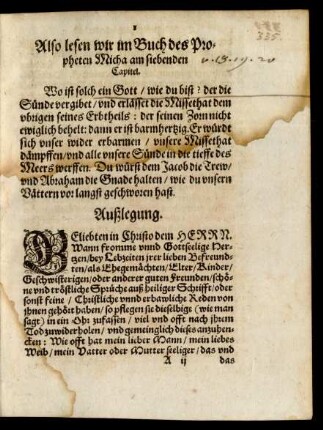 Also lesen wir im Buch des Pro-
pheten Micha am siebenden
Capitel.
v. 18. 19. 20
Wo ist solch ein Gott / wie du bist? der die
Sünde vergibet / vnd erlässet die Missethat dem
vbrigen seines Erbtheils: der seinen Zorn nicht
ewiglich behelt: dann er ist barmhertzig. Er würdt
sich vnser wider erbarmen / vnsere Missethat
dämpffen / vnd alle vnsere Sünde in die tieffe des
Meers werffen. Du würst dem Jacob die Trew /
vnd Abraham die Gnade halten / wie du vnsern
Vättern vor langst geschworen hast.
Außlegung.
GEliebten in Christo dem HERRN.
Wann fromme vnnd Gottselige Her-
tzen / bey Lebzeiten jrer lieben Befreund-
ten / als Ehegemächten / Elter / Kinder /
Geschwisterigen / oder anderer guten Freunden / schö-
ne vnd tröstliche Sprüche auß heiliger Schrifft / oder
sonst feine / Christliche vnnd erbawliche Reden von
jhnen gehört haben / so pflegen sie dieselbige (wie man
sagt) in ein Ohr zufassen / viel vnd offt nach jhrem
Tod zuwiderholen / vnd gemeinglich dieses anzuhen-
cken: Wie offt hat mein lieber Mann / mein liebes
Weib / mein Vatter oder Mutter seeliger / das vnd
A ij das